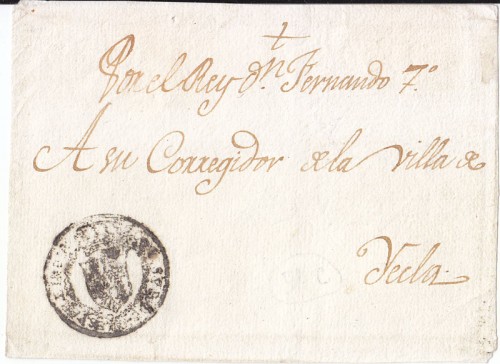 Por el Rey Dn. Fernando 7.º
A su Corregidor de la villa de
Yecla